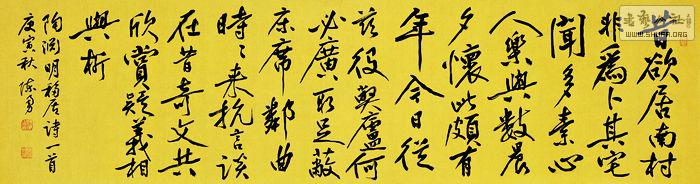 昔欲居南村
非爲卜其宅
聞多素心
人樂與數晨
夕懷此頗有
年今日從
兹役弊廬何
必廣取足蔽
床席鄰曲
時〻来抗言談
在昔奇文共
欣賞疑義相
與析
陶渊明移居诗一首
庚寅秋 陈勇
书艺公社
WWW.SHUFA.ORG